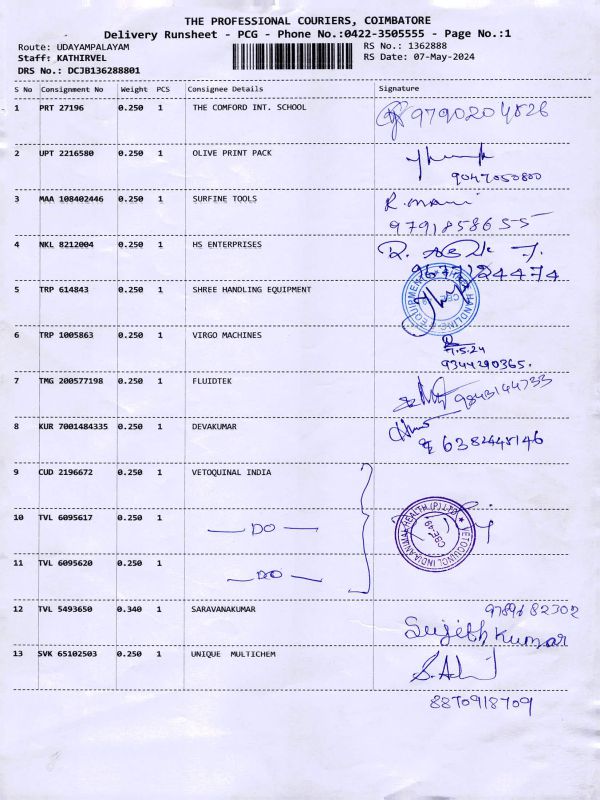 THE PROFESSIONAL COURIERS, COIMBATORE
Delivery Runsheet - PCG - Phone No.:0422-3505555 - Page No.:1
Route: UDAYAMPALAYAM RS No.: 1362888
Staff: KATHIRVEL RS Date: 07-May-2024
DRS No.: DCJB136288801
S No Consignment No Weight PCS Consignee Details Signature
1 PRT 27196 0.250 1 THE COMFORD INT. SCHOOL 9790204826
2 UPT 2216580 0.250 1 OLIVE PRINT PACK
9047050800
3 MAA 108402446 0.250 1 SURFINE TOOLS R.mani
9791858655
4 NKL 8212004 0.250 1 HS ENTERPRISES
9677124474
5 TRP 614843 0.250 1 SHREE HANDLING EQUIPMENT HANDLING EQUIPMENT
6 TRP 1005863 0.250 1 VIRGO MACHINES
7.5.24
9344290365.
7 TMG 200577198 0.250 1 FLUIDTEK 9843144733
8 KUR 7001484335 0.250 1 DEVAKUMAR
6382445146
9 CUD 2196672 0.250 1 VETOQUINAL INDIA
10 TVL 6095617 0.250 1
DO
VETOQUINOL INDIA ANIMAL HEALTH (P) LTD
CBE-49
11 TVL 6095620 0.250 1
DO
12 TVL 5493650 0.340 1 SARAVANAKUMAR
Sujith Kumar
13 SVK 65102503 0.250 1 UNIQUE MULTICHEM
8870918709